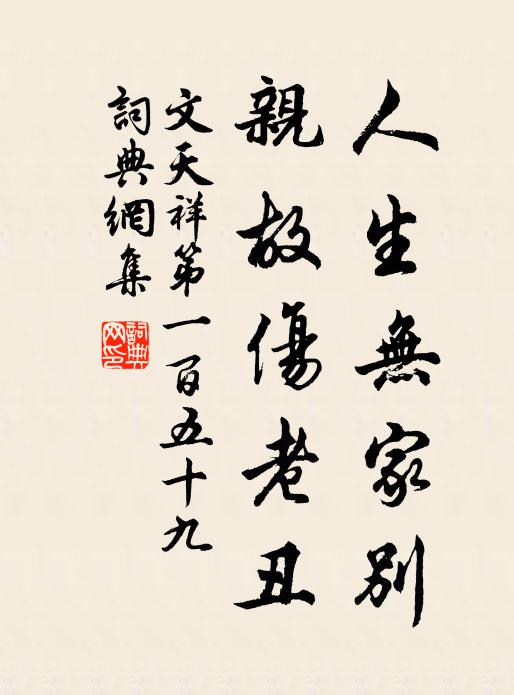 人生無家別
親故傷老丑
文天祥第一百五十九
詞典網集
詞典網印